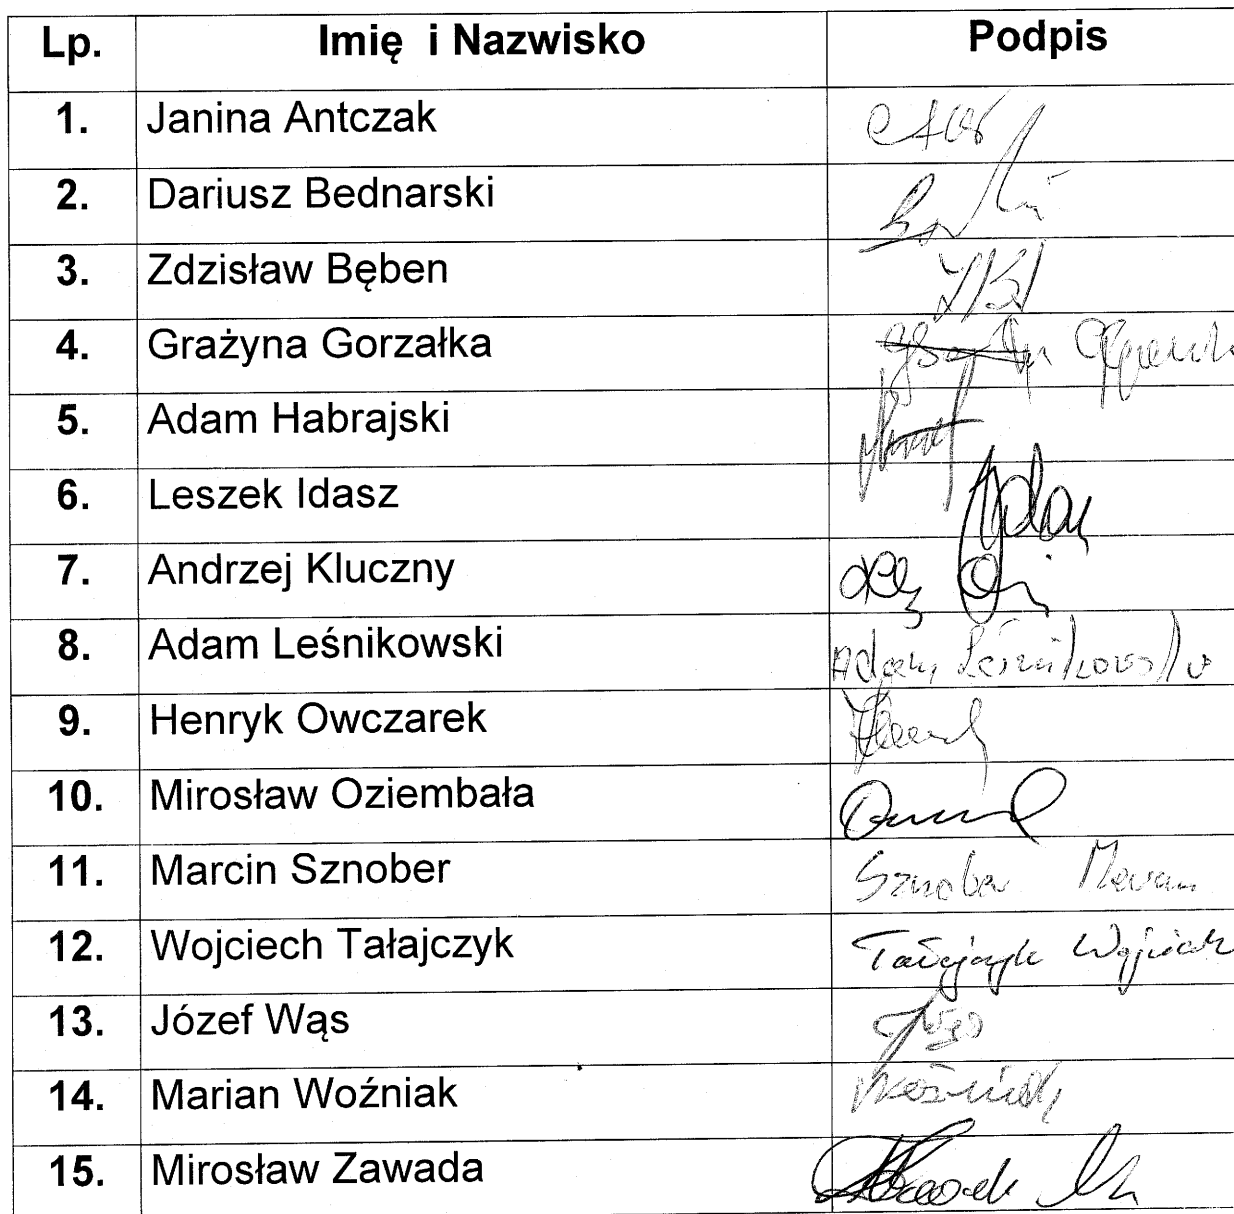 Lp. Imię i Nazwisko Podpis
1. Janina Antczak
2. Dariusz Bednarski
3. Zdzisław Bęben
4. Grażyna Gorzałka
5. Adam Habrajski
6. Leszek Idasz
7. Andrzej Kluczny
8. Adam Leśnikowski Adam Leśnikowski
9. Henryk Owczarek
10. Mirosław Oziembała
11. Marcin Sznober Sznober Marcin
12. Wojciech Tałajczyk Tałajczyk Wojciech
13. Józef Wąs
14. Marian Woźniak Woźniak
15. Mirosław Zawada